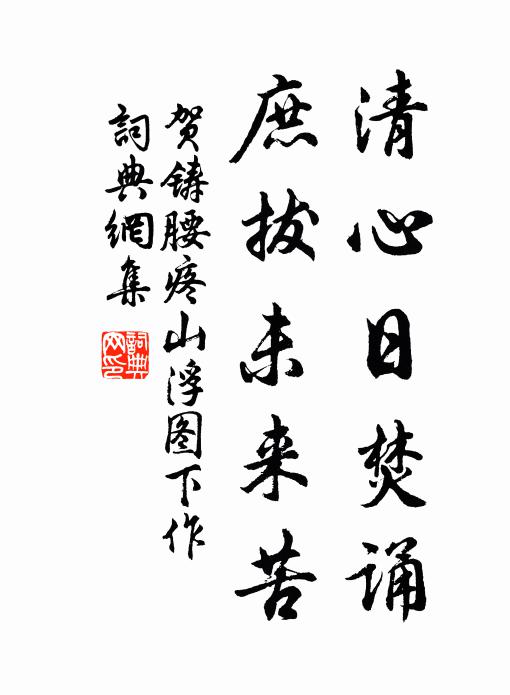 清心日焚诵
庶拔未来苦
贺铸腰疼山浮图下作
詞典網集
詞典网印